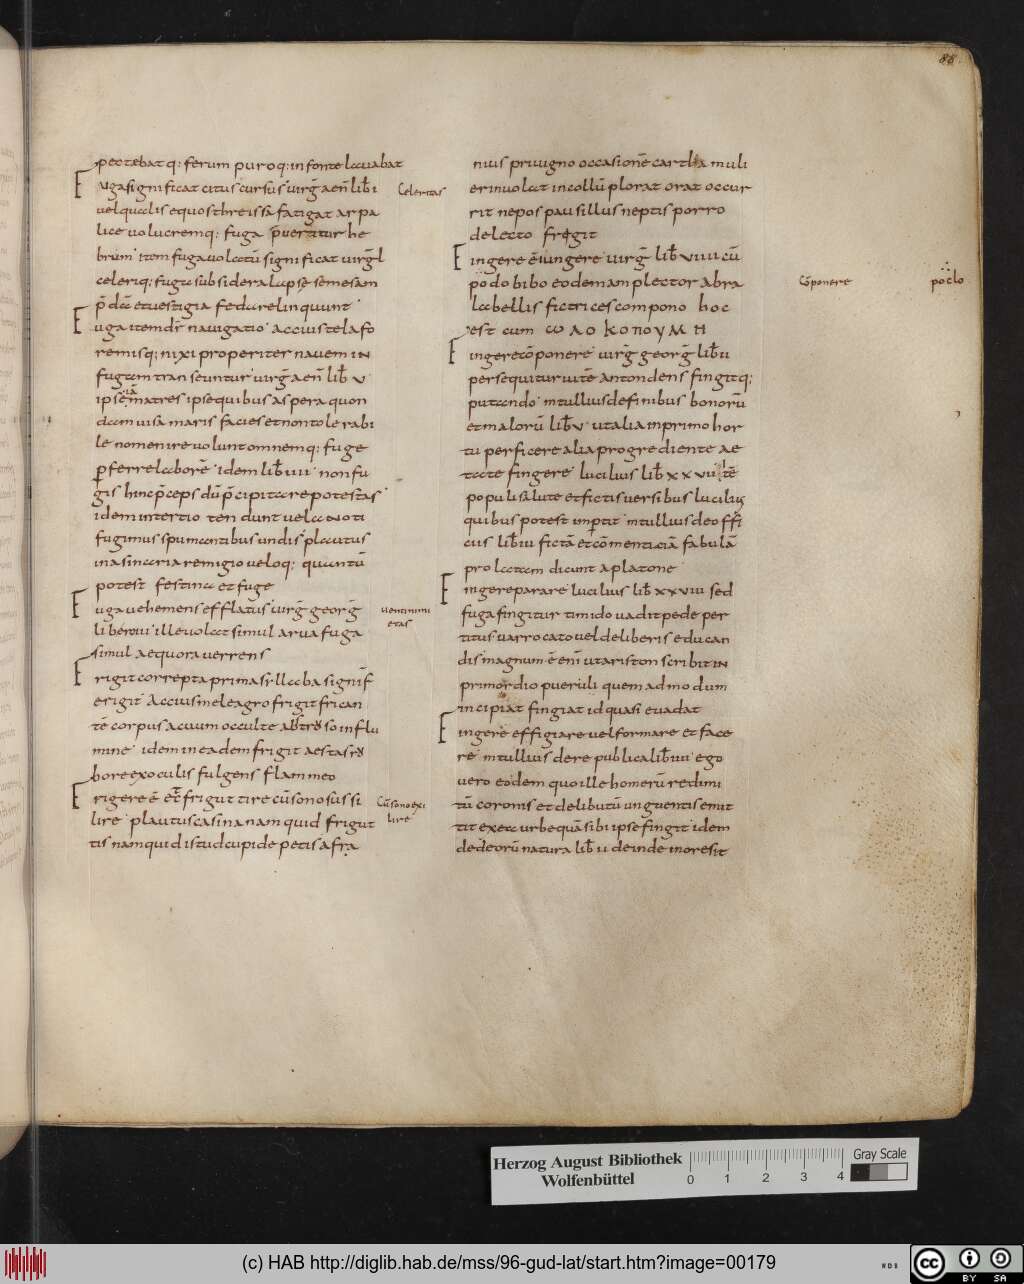 88
pectebatq: ferum puroq: infonte lauabat
Fuga significat citus cursus uirg̅ aen̅ lib̅ i
uel qualis equos threissa fatigat arpa
lice uolucremq: fuga p̅uertitur he
brum item fuga uolatū significat uirg̅l
celeriq: fuga sub sidera lapse semesam
p̅dā et uestigia feda relinquunt
Fuga item dr̅ nauigatio accius telafo
remisq; nixi properiter nauem in
fugam transeuntur uirg̅ aen̅ lib̅ v
ipsę matres ipse quibus aspera quon
dam uisa maris facies et non tolerabi
le nomen ire uolunt omnemq: fuge
p̱ferre laborē idem lib̅ iiii non fu
gis hinc p̅ceps dū p̅cipitare potestas
idem in tertio tendunt uela noti
fugimus spumantibus undis placitus
in asinaria remigio ueloq: quantū
potest festina et fuge
Fuga uehemens efflatus uirg̅ georg̅
liberiii ille uolat simul arua fuga
simul aequora uerrens
Frigit correpta prima syllaba signif̅
erigit Accius meleagro frigit frican
tē corpus acuum occulte abstruso in flu
mine idem in eadem frigit aestas
bore ex oculis fulgens flammeo
Frigere ē et frigutire cū sono sussi
lire plautus casina nam quid frigut
tis nam quid istud cupide petis afra
Celeritas
uenti nimi
etas
Cū sono exi
lire
nius priuigno occasionē carthia muli
er inuolat in collū plorat orat occur
rit nepos pausillus neptis porro
delecto fregit
Fingere ē iungere uirg̅ lib̅ viiii cū
podo bibo eodem amplector abra
labellis fictrices compono hoc
est cum
Fingere cōponere uirg̅ georg̅ lib̅ ii
persequitur uitē attondens fingitq;
putando m tullius de finibus bonorū
et malorū lib̅ v ut alia in primo hor
tu perficere alia progrediente ae
tate fingere lucilius lib̅ xxvii tē
populi salute et fictis uersibus lucilius
quibus potest inpertit m tullius de offi
ciis lib̅ iii fictā et cōmenticiā fabulā
prolatam dicunt a platone
Fingere parare lucilius lib̅ xxviii sed
fuga fingitur timido uadit pede per
titus uarro cato uel de liberis educan
dis magnum ē eni̅ ut ariston scribit in
primordio pueruli quem ad modum
incipiat fingi at id quasi euadat
Fingere effigiare uel formare et face
re m tullius de re publica lib̅ iiii ego
uero eodem quo ille homerū redimi
tū coronis et delibutū unguentis emit
tit ex ea urbe quā sibi ipse fingit idem
de deorū natura lib̅ ii deinde in oresit
Cōponere
poclo
Herzog August Bibliothek
Wolfenbüttel
0 1 2 3 4
Gray Scale
(c) HAB http://diglib.hab.de/mss/96-gud-lat/start.htm?image=00179
WDB
cc BY SA